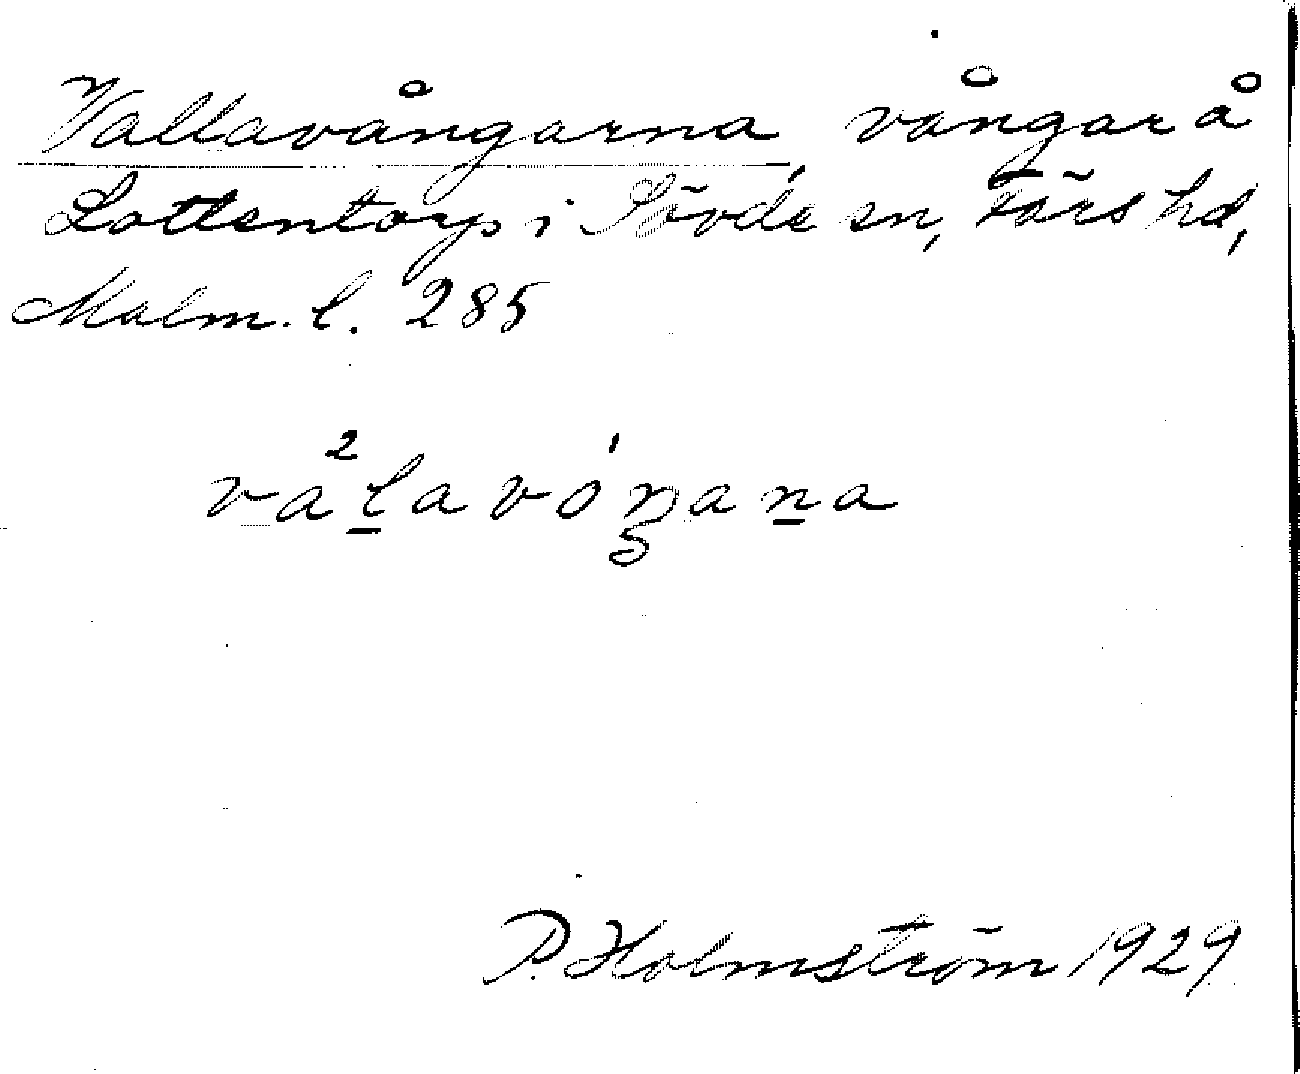 Vallavångarna, vångar å
Lottentorp i Sövde sn, Färs hd,
Malm. l. 285
va²l̲avóŋan̲a
P. Holmström 1929